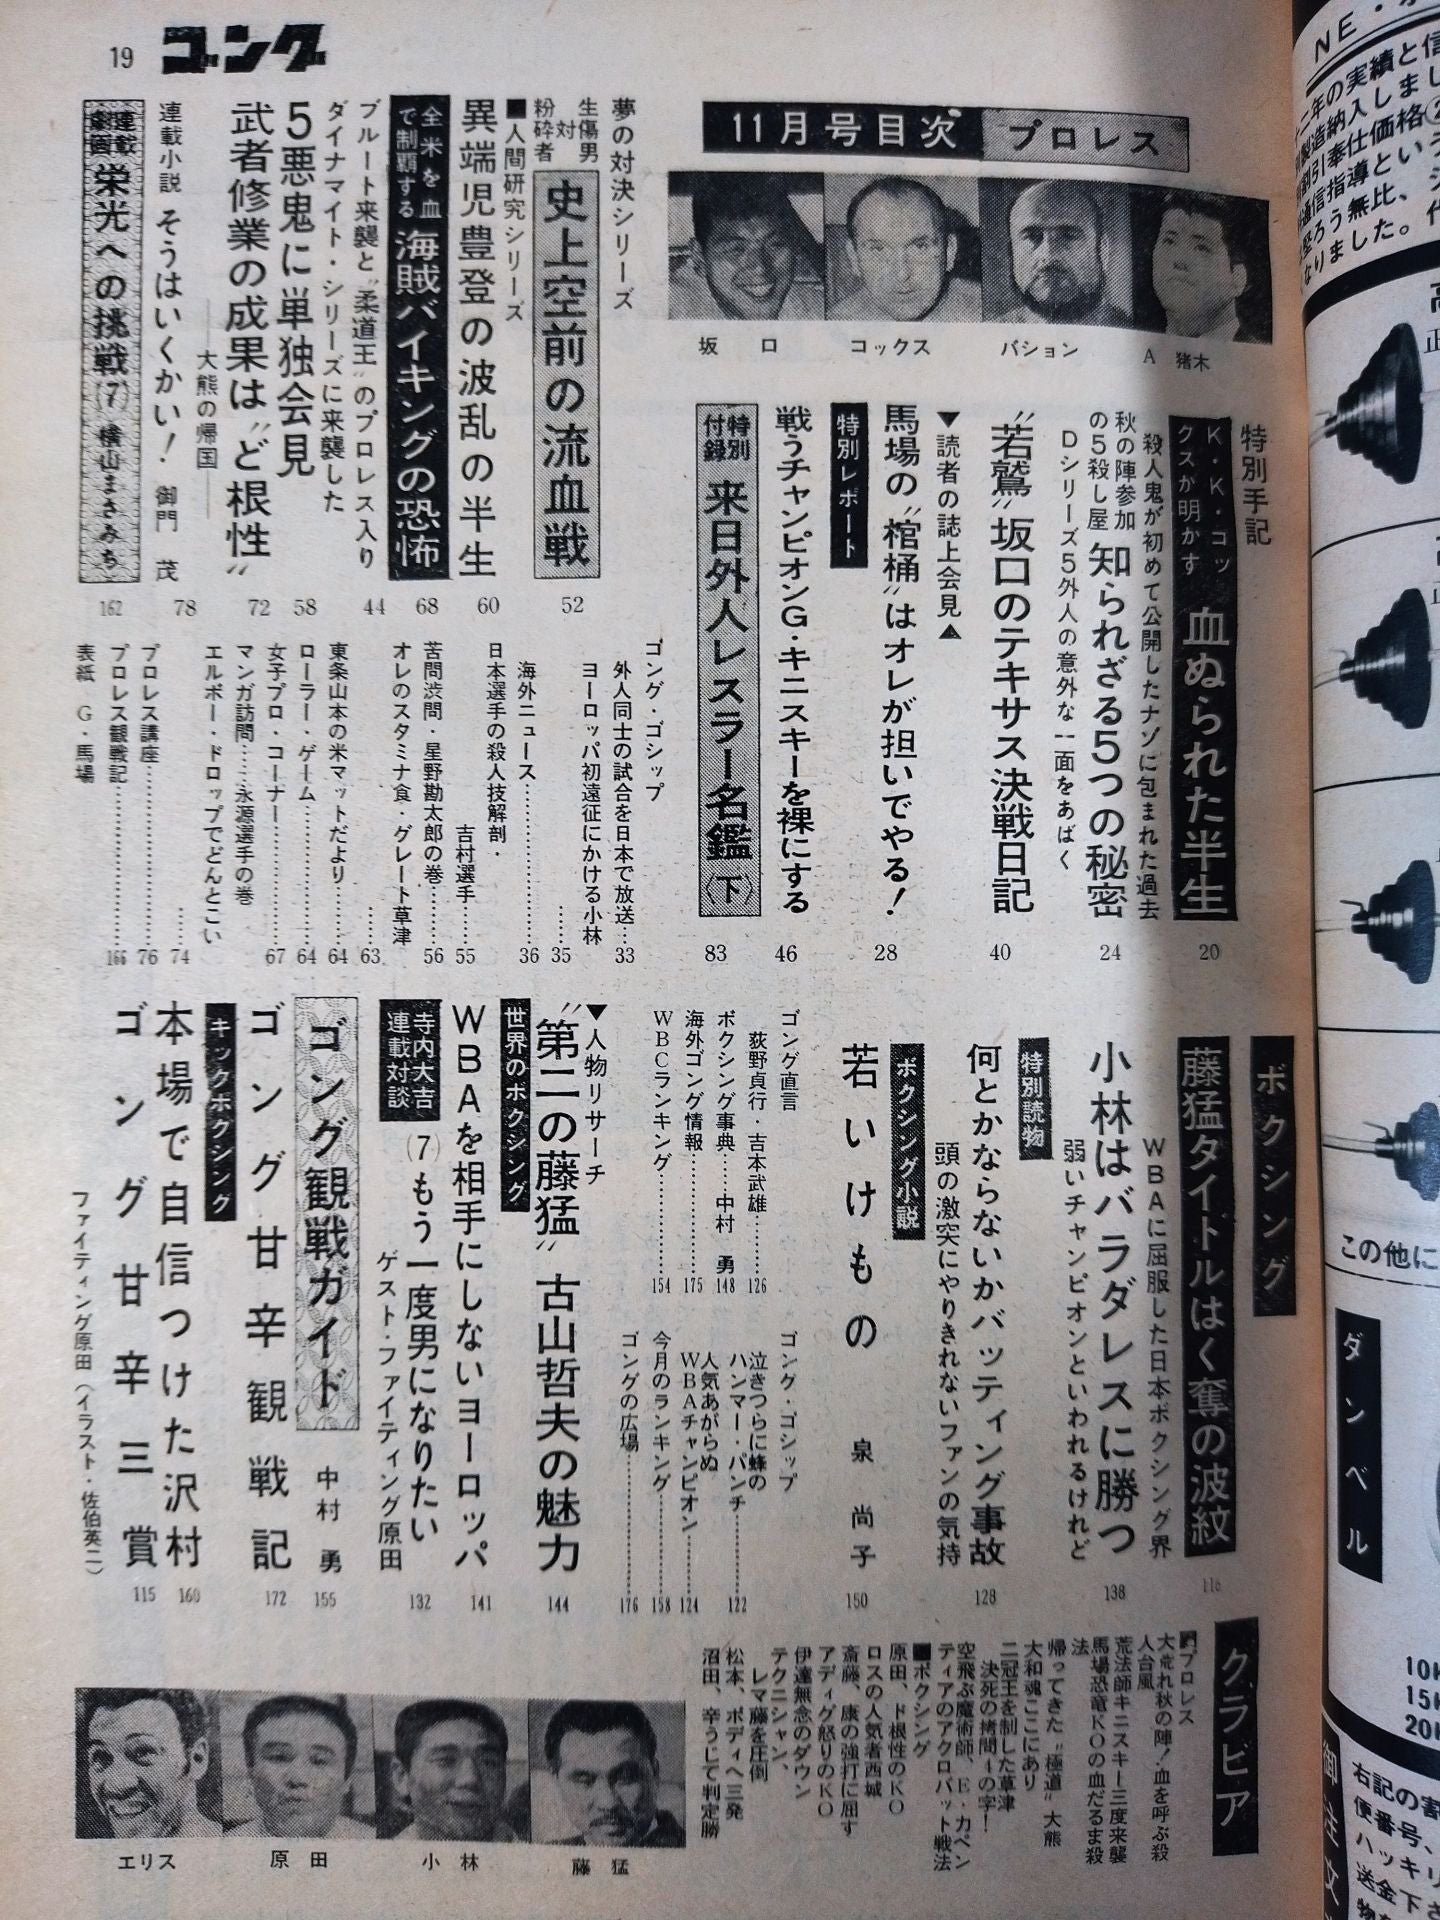 19
ゴング
11月号目次
プロレス
坂口
コックス
バション
A猪木
特別手記
K・K・コックスが明かす
血ぬられた半生
20
殺人鬼が初めて公開したナゾに包まれた過去
秋の陣参加の5殺し屋
知られざる5つの秘密
24
Dシリーズ5外人の意外な一面をあばく
“若鷲”坂口のテキサス決戦日記
40
▼読者の誌上会見▲
馬場の“棺桶”はオレが担いでやる！
28
特別レポート
戦うチャンピオンG・キニスキーを裸にする
46
特別付録
来日外人レスラー名鑑〈下〉
83
夢の対決シリーズ
生傷男対粉砕者
史上空前の流血戦
52
■人間研究シリーズ
異端児豊登の波乱の半生
60
全米を血で制覇する
海賊バイキングの恐怖
68
ブルート来襲と“柔道王”のプロレス入り
44
ダイナマイト・シリーズに来襲した
5悪鬼に単独会見
58
武者修業の成果は“ど根性”
72
――大熊の帰国――
連載小説
そうはいくかい！
御門 茂
78
連載劇画
栄光への挑戦(7)
横山まさみち
162
ゴング・ゴシップ
外人同士の試合を日本で放送……33
ヨーロッパ初遠征にかける小林……35
海外ニュース……36
日本選手の殺人技解剖・
吉村選手……55
苦問渋問・星野勘太郎の巻……56
オレのスタミナ食・グレート草津……63
東条山本の米マットだより……64
ローラー・ゲーム……64
女子プロ・コーナー……67
マンガ訪問……永源選手の巻
エルボー・ドロップでどんとこい……74
プロレス講座……76
プロレス観戦記……166
表紙 G・馬場
ボクシング
藤猛タイトルはく奪の波紋
116
WBAに屈服した日本ボクシング界
小林はバラダレスに勝つ
138
弱いチャンピオンといわれるけれど
特別読物
何とかならないかバッティング事故
128
頭の激突にやりきれないファンの気持
ボクシング小説
若いけもの
泉 尚子
150
ゴング直言
荻野貞行・吉本武雄……126
ボクシング事典……中村 勇 148
海外ゴング情報……175
WBCランキング……154
ゴング・ゴシップ
泣きつらに蜂の
ハンマー・パンチ……122
人気あがらぬ
WBAチャンピオン……124
今月のランキング……158
ゴングの広場……176
▼人物リサーチ
“第二の藤猛”古山哲夫の魅力
144
世界のボクシング
WBAを相手にしないヨーロッパ
141
寺内大吉連載対談
(7)もう一度男になりたい
132
ゲスト・ファイティング原田
ゴング観戦ガイド
中村 勇
155
ゴング甘辛観戦記
172
キックボクシング
本場で自信つけた沢村
160
ゴング甘辛三賞
115
ファイティング原田（イラスト・佐伯英二）
グラビア
■プロレス
大荒れ秋の陣！血を呼ぶ殺人台風
荒法師キニスキー三度来襲
馬場恐竜KOの血だるま殺法
帰ってきた“極道”大熊
大和魂ここにあり
二冠王を制した草津
決死の拷問4の字！
空飛ぶ魔術師、E・カペンティアのアクロバット戦法
■ボクシング
原田、ド根性のKO
ロスの人気者西城
斎藤、康の強打に屈す
アディグ怒りのKO
伊達無念のダウン
テクニシャン、
レマ藤を圧倒
松本、ボディへ三発
沼田、辛うじて判定勝
エリス
原田
小林
藤猛
この他に
ダンベル
10K
15K
20K